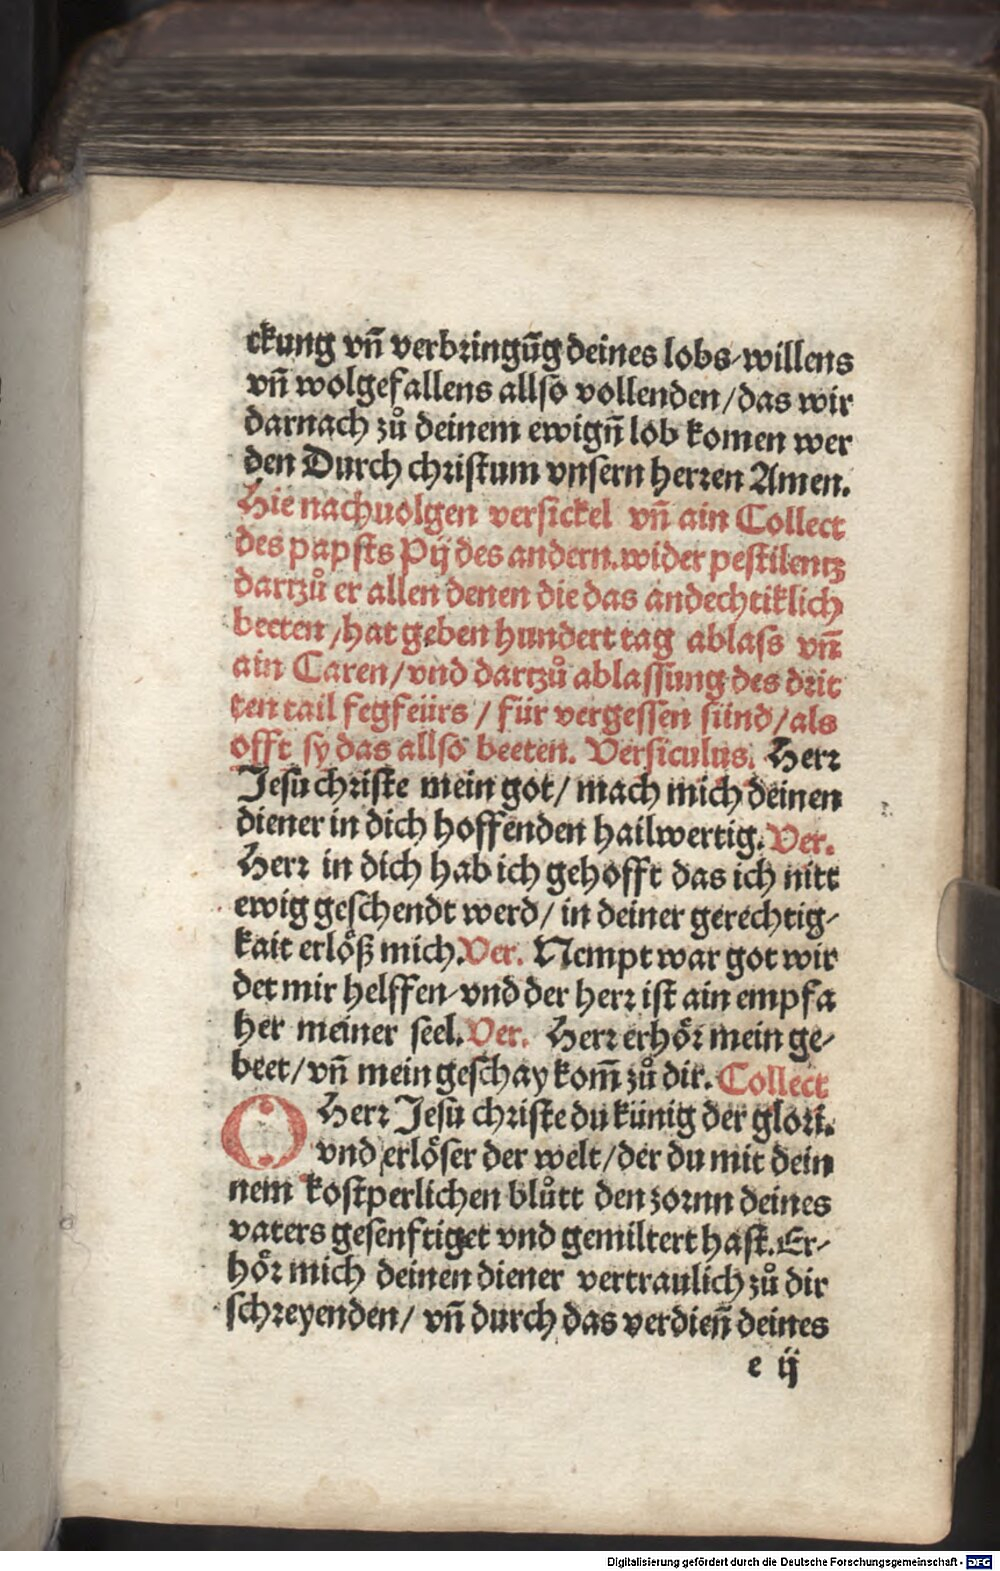 ckung vn̄ verbringūg deines lobs-willens
vn̄ wolgefallens allso vollenden/das wir
darnach zů deinem ewign̄ lob komen wer
den Durch christum vnsern herren Amen.
Hie nachuolgen versickel vn̄ ain Collect
des papsts Pij des andern.wider pestilentz
dartzů er allen denen die das andechtiklich
beeten/hat geben hundert tag ablass vn̄
ain Caren/vnd dartzů ablassung des drit
ten tail fegfeürs/für vergessen sünd/als
offt sy das allso beeten. Versiculus. Herr
Jesu christe mein got/mach mich deinen
diener in dich hoffenden hailwertig. Ver.
Herr in dich hab ich gehofft das ich nitt
ewig geschendt werd/in deiner gerechtig-
kait erlöß mich. Ver. Nempt war got wir
det mir helffen-vnd der herr ist ain empfa
her meiner seel. Ver. Herr erhör mein ge-
beet/vn̄ mein geschay kom̄ zů dir. Collect
O Herr Jesu christe du künig der glori.
vnd erlöser der welt/der du mit dein
nem kostperlichen blůtt den zornn deines
vaters gesenftiget vnd gemiltert hast. Er-
hör mich deinen diener vertraulich zů dir
schreyenden/vn̄ durch das verdien̄ deines
e ij
Digitalisierung gefördert durch die Deutsche Forschungsgemeinschaft - DFG